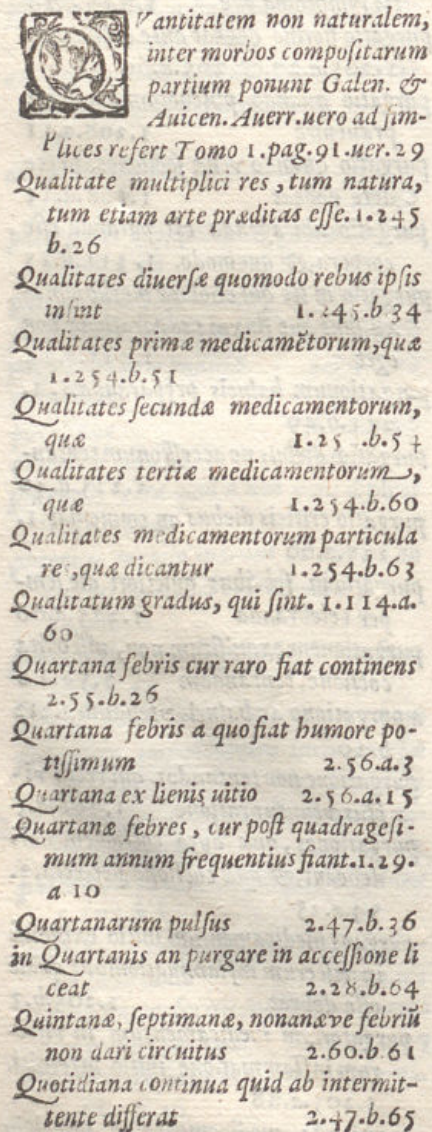 QVantitatem non naturalem,
inter morbos compoſitarum
partium ponunt Galen. &
Auicen. Auerr. uero ad ſim-
plices refert Tomo 1.pag.91.uer.29
Qualitate multiplici res, tum natura,
tum etiam arte præditas eſſe. 1.245
b.26
Qualitates diuerſæ quomodo rebus ipſis
inſint 1.245.b 34
Qualitates primæ medicamẽtorum, quæ
1.254.b.51
Qualitates ſecundæ medicamentorum,
quæ
Qualitates tertiæ medicamentorum,
quæ 1.254.b.60
Qualitates medicamentorum particula
res, quæ dicantur 1.254.b.63
Qualitatum gradus, qui ſint. 1.114.a.
60
Quartana febris cur raro fiat continens
2.55.b.26
Quartana febris a quo fiat humore po-
tiſſimum 2.56.a.3
Quartana ex lienis uitio 2.56.a.15
Quartanæ febres, cur poſt quadrageſi-
mum annum frequentius fiant. 1.29.
a 10
Quartanarum pulſus 2.47.b.36
in Quartanis an purgare in acceſſione li
ceat 2.28.b.64
Quintanæ, ſeptimanæ, nonanæve febriũ
non dari circuitus 2.60.b 61
Quotidiana continua quid ab intermit-
tente differat 2.47.b.65